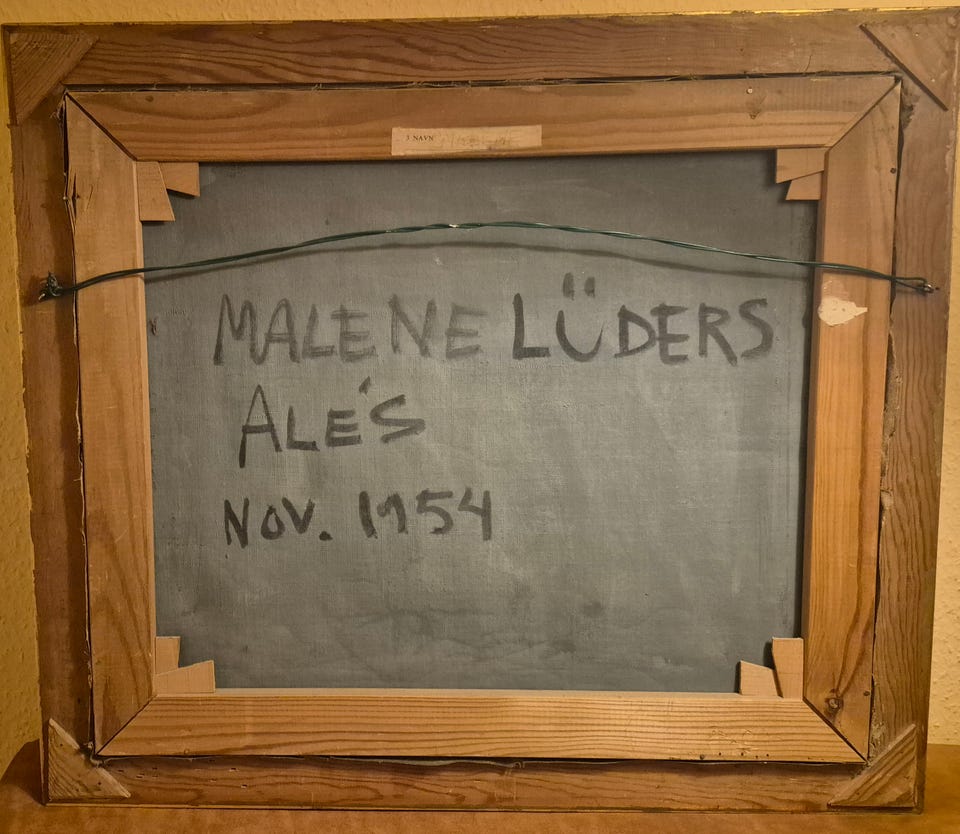 3 NAVN
MALENE LÜDERS
ALÉS
NOV. 1954